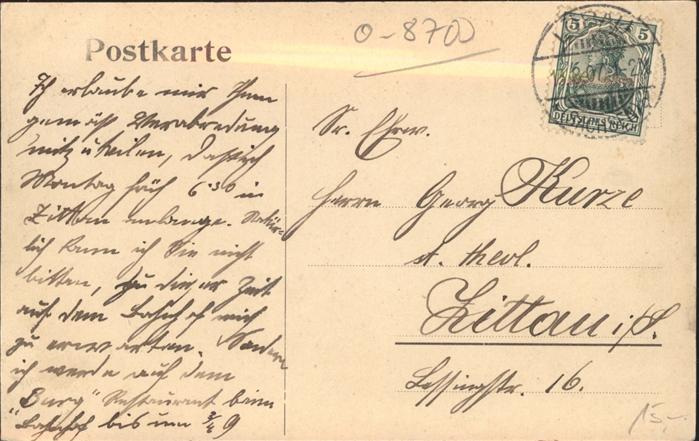 Postkarte
O-8700
5 5
DEUTSCHES REICH
Ich erlaube mir Ihnen
gemäß Verabredung
mitzuteilen, daß ich
Montag früh 6³⁰ in
Zittau anlange. Natür-
lich kann ich Sie nicht
bitten, zu dieser Zeit
auf dem Bahnhof mich
zu erwarten. Sondern
ich werde auf dem
"Burg" Restaurant beim
Bahnhof bis um ¾ 9
Sr. Ehrw.
Herrn Georg Kurze
st. theol.
Zittau i/S.
Lessingstr. 16.
15,-